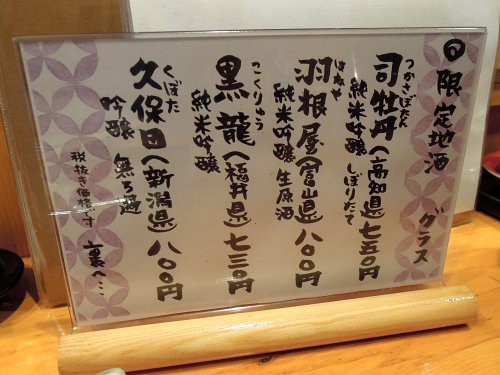 限定地酒 グラス
つかさぼたん
司牡丹(高知県)七五〇円
純米吟醸 しぼりたて
はねや
羽根屋(富山県)八〇〇円
純米吟醸 生原酒
こくりゅう
黒龍(福井県)七三〇円
純米吟醸
くぼた
久保田(新潟県)八〇〇円
吟醸 無ろ過
税抜き価格です
裏へ…